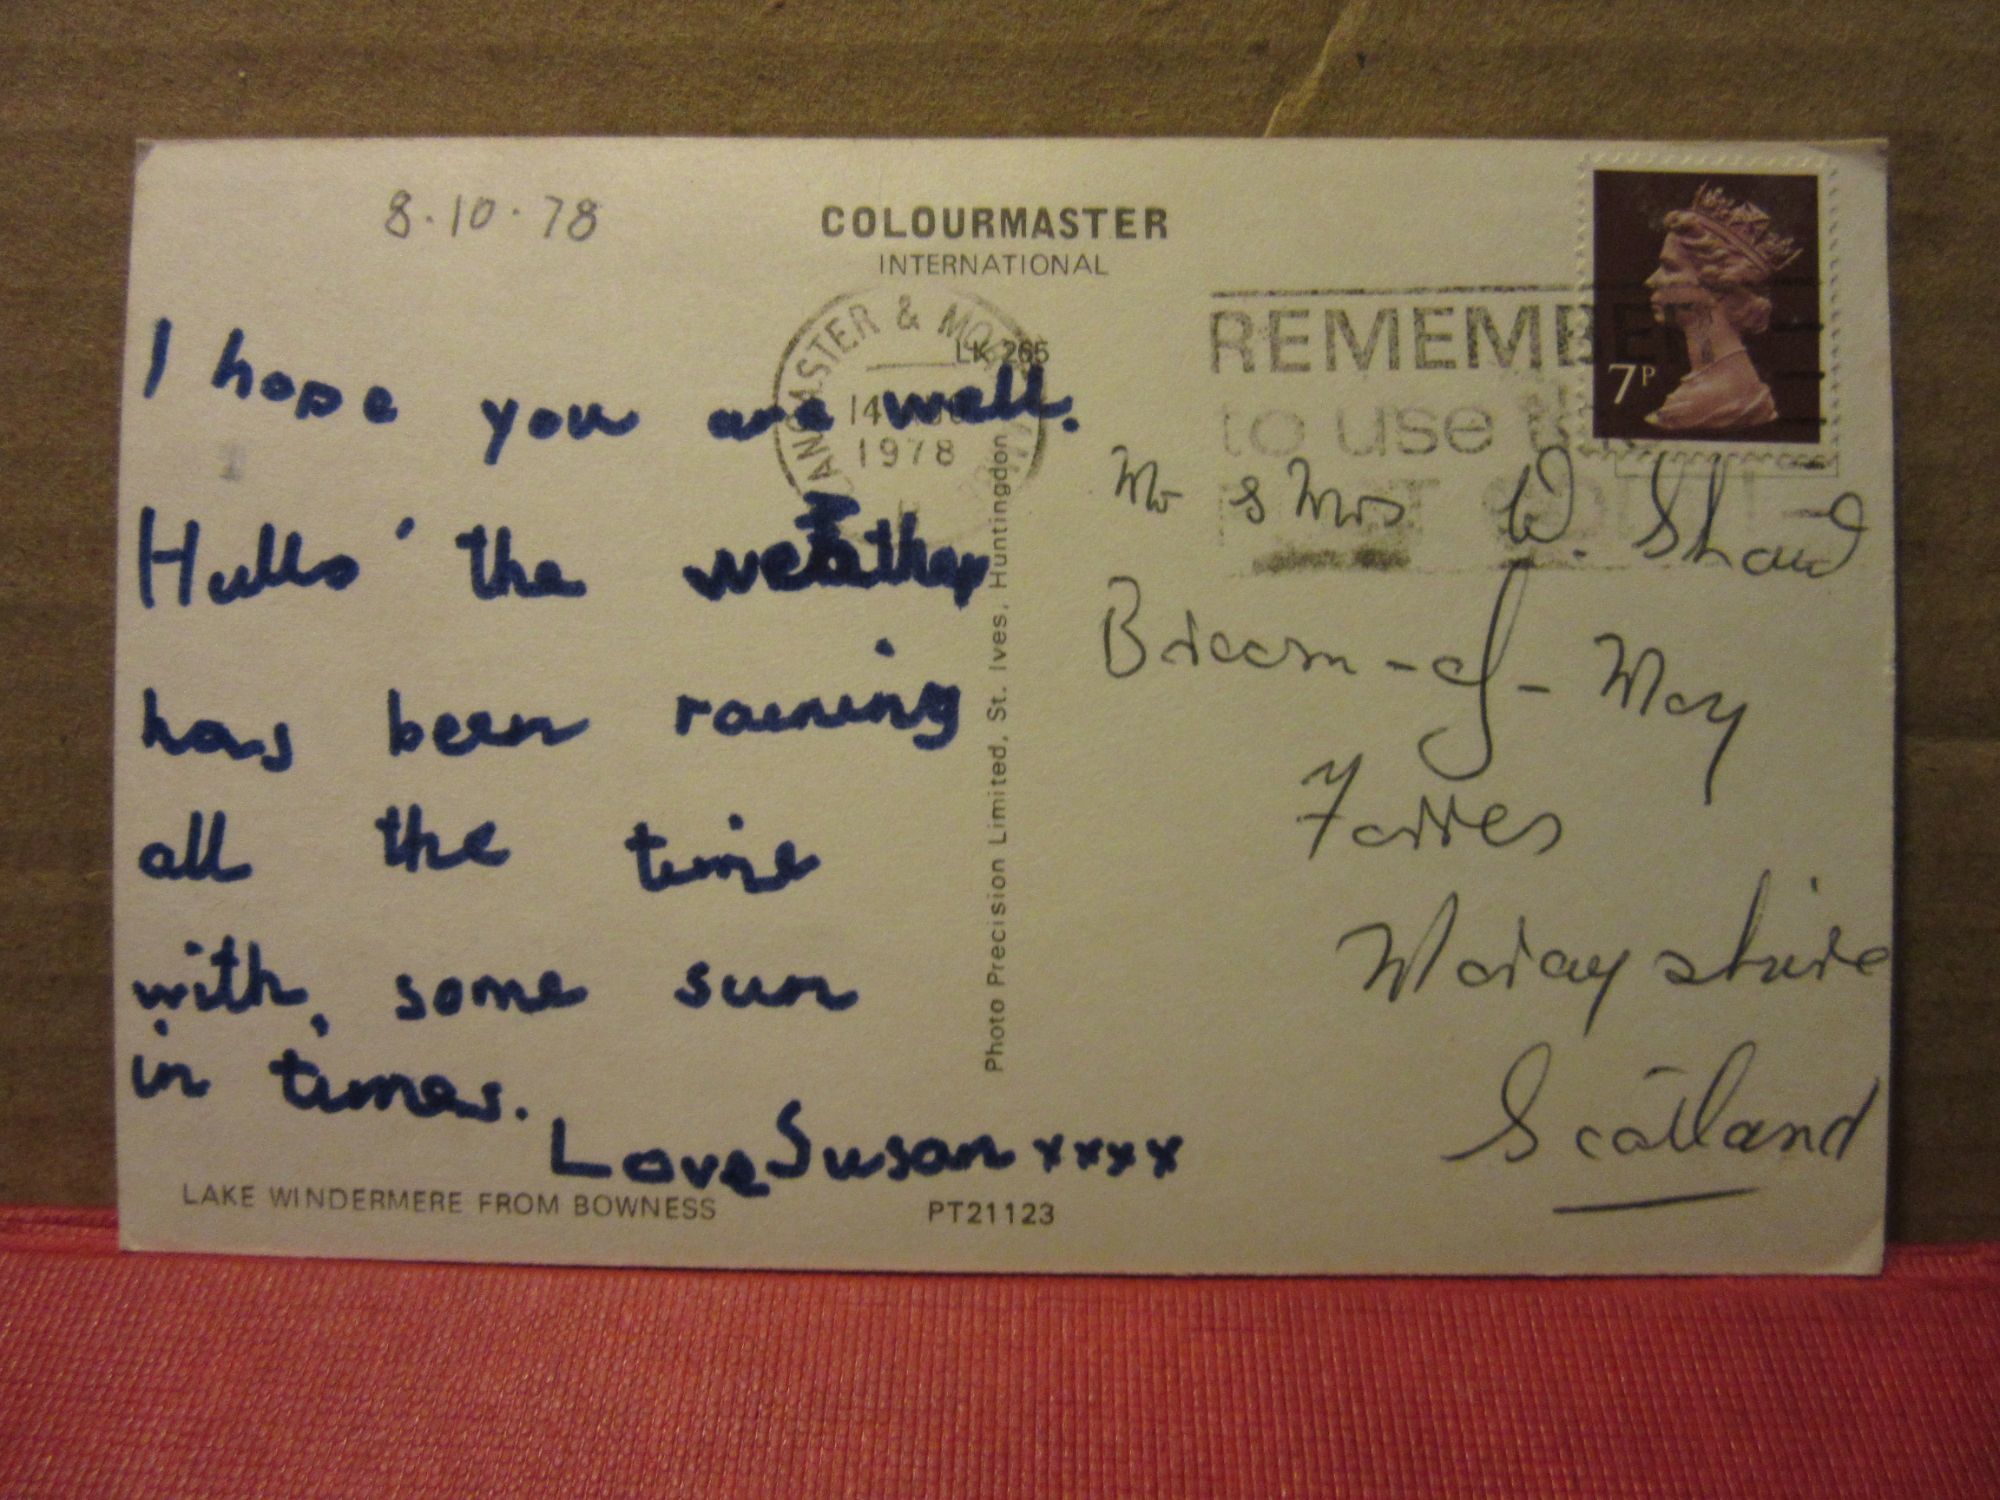 8.10.78
COLOURMASTER
INTERNATIONAL
LANCASTER &
14
1978
LK 265
REMEMBER
to use
7P
I hope you are well.
Hullo' the weather
has been raining
all the time
with, some sun
in times.
Love Susan xxxx
Photo Precision Limited, St. Ives, Huntingdon
Mr & Mrs W. Shaw
Broom-of-Moy
Forres
Morayshire
Scotland
LAKE WINDERMERE FROM BOWNESS
PT21123